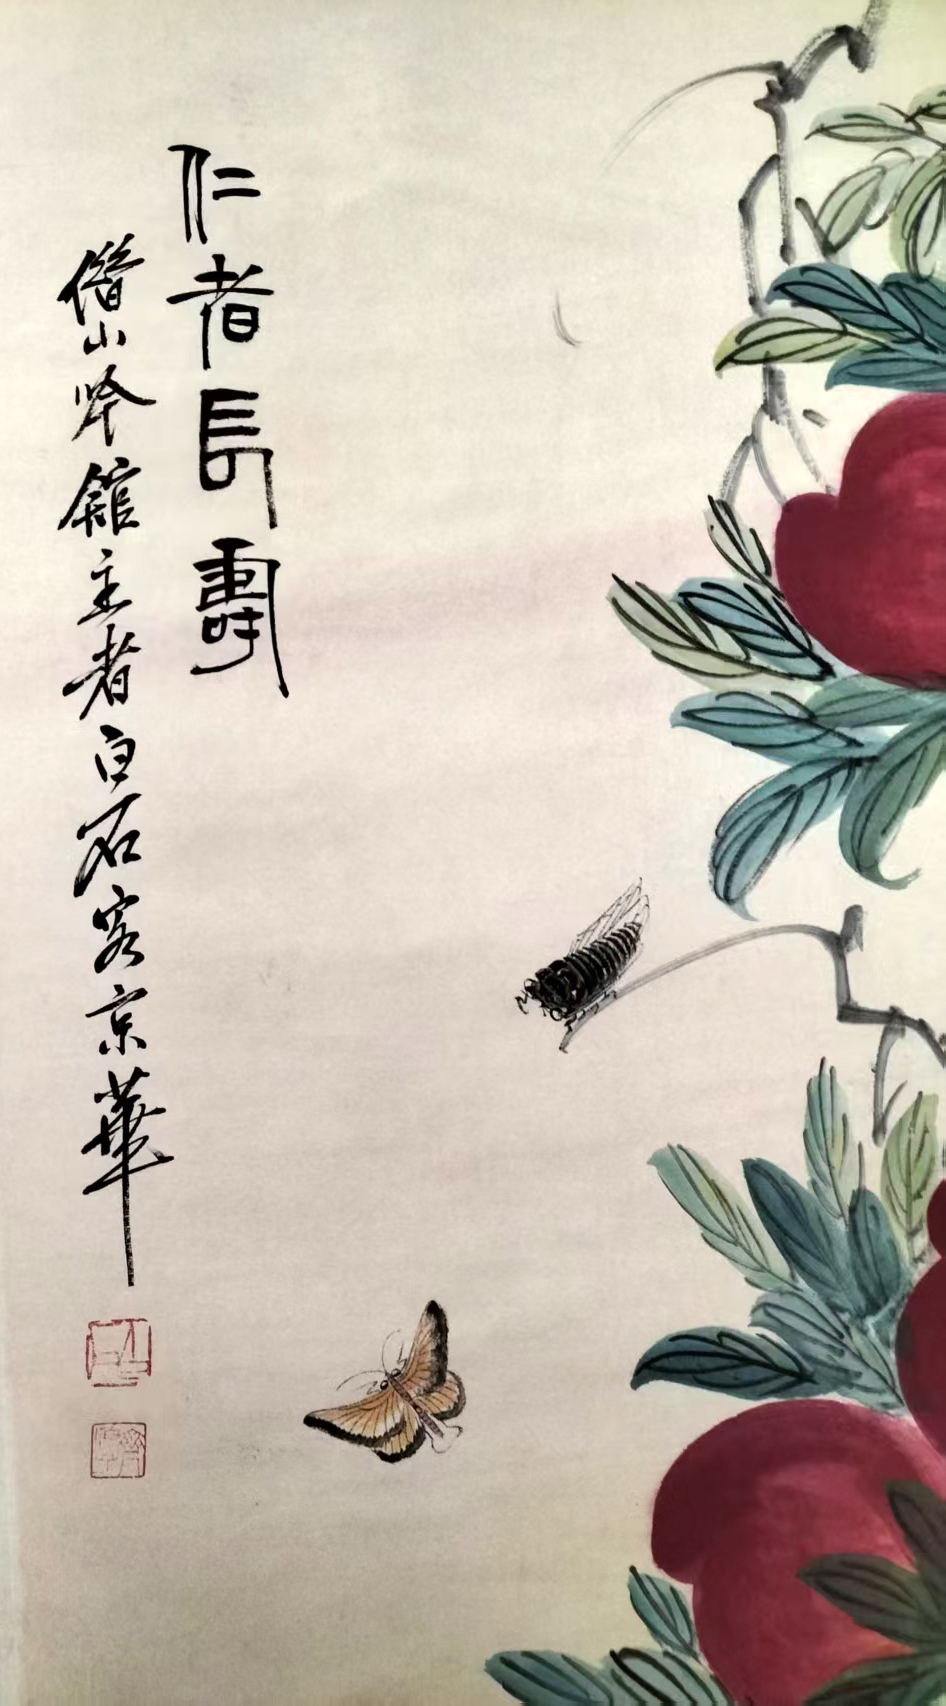 仁者長壽
借山吟館主者白石客京華